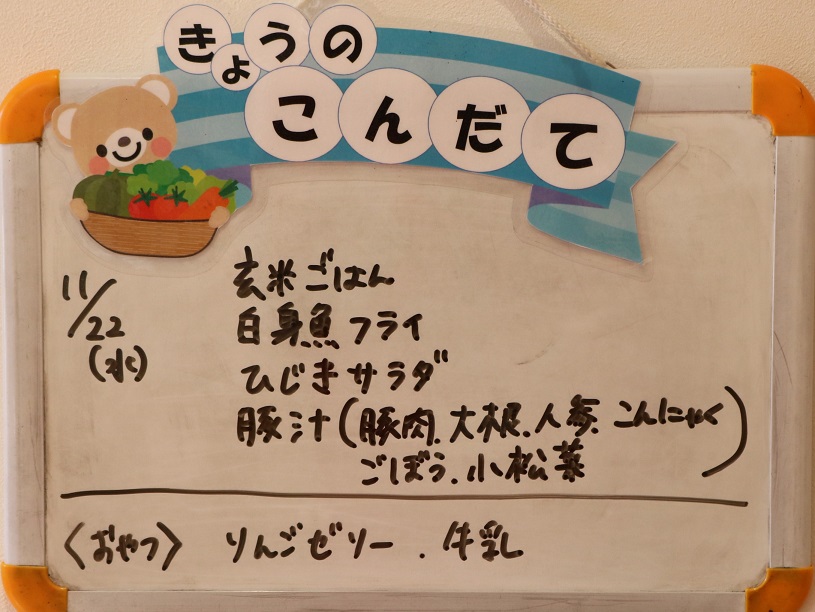 きょうの
こんだて
11/22
(水)
玄米ごはん
白身魚フライ
ひじきサラダ
豚汁(豚肉.大根.人参.こんにゃく
ごぼう.小松菜)
〈おやつ〉 りんごゼリー.牛乳